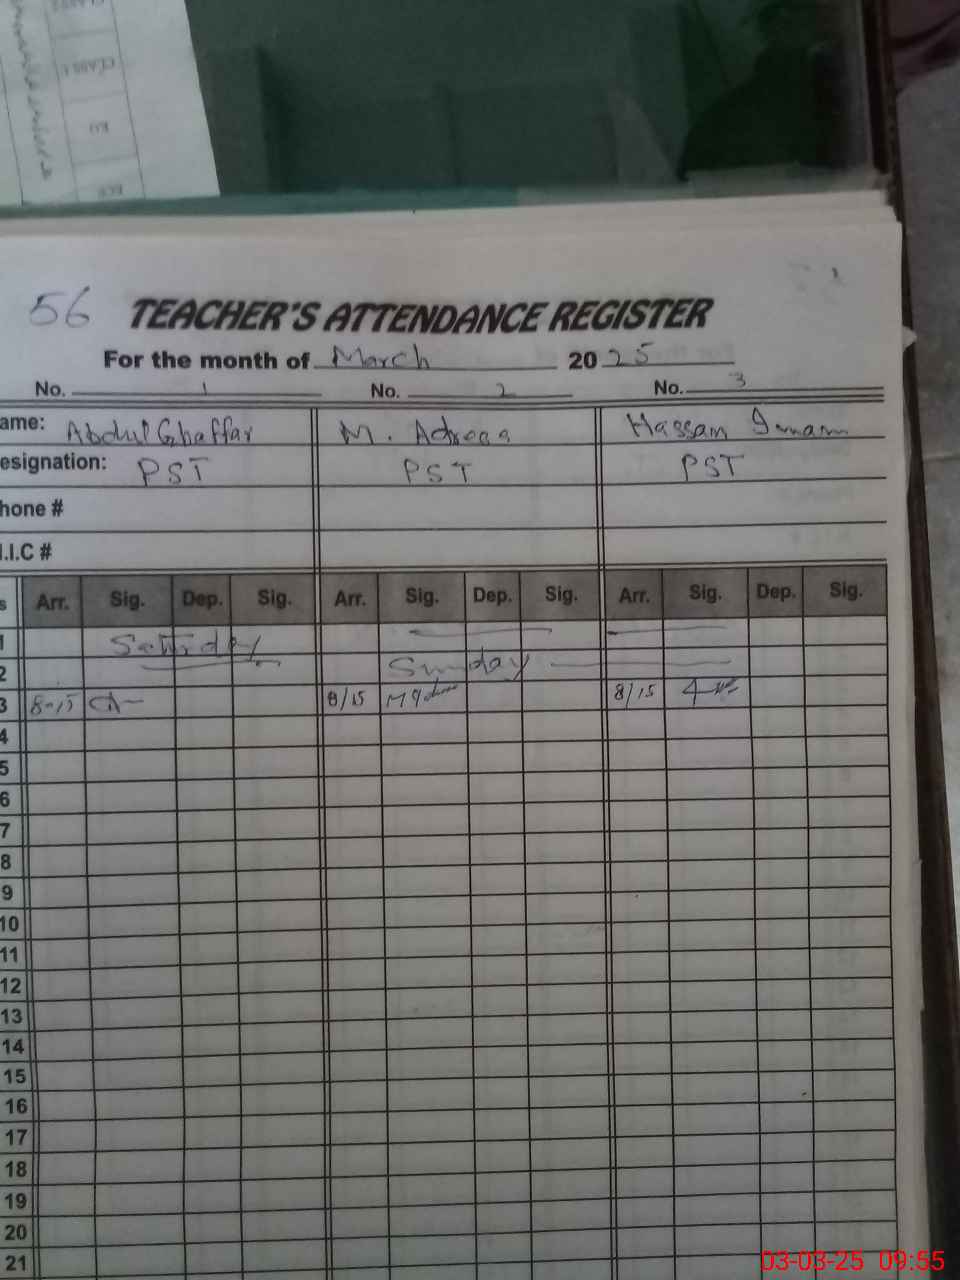 CLASS
CLASS 1
KG
ECE
56 TEACHER'S ATTENDANCE REGISTER
For the month of March 2025
No. 1 No. 2 No. 3
ame: Abdul Ghaffar M. Adrees Hassam Imam
esignation: PST PST PST
hone #
.I.C #
s Arr. Sig. Dep. Sig. Arr. Sig. Dep. Sig. Arr. Sig. Dep. Sig.
1 Saturday
2 Sunday
3 8-15 8/15 8/15
4
5
6
7
8
9
10
11
12
13
14
15
16
17
18
19
20
21
03-03-25 09:55